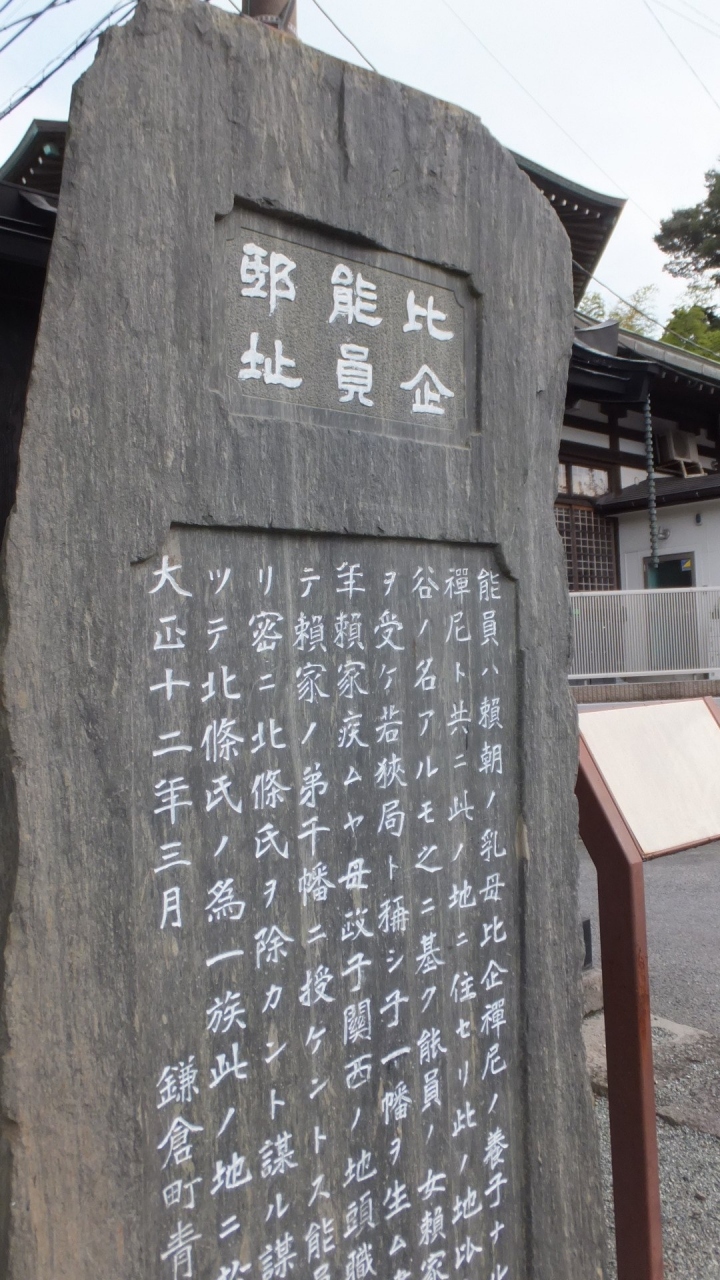 比企
能員
邸址
能員ハ頼朝ノ乳母比企禪尼ノ養子ナル
禪尼ト共ニ此ノ地ニ住セリ此ノ地比
谷ノ名アルモ之ニ基ク能員ノ女頼家
ヲ受ケ若狹局ト稱シ子一幡ヲ生ム
年頼家疾ムヤ母政子關西ノ地頭職
テ頼家ノ弟千幡ニ授ケントス能員
リ密ニ北條氏ヲ除カント謀ル謀
ツテ北條氏ノ爲一族此ノ地ニ於
大正十二年三月 鎌倉町青